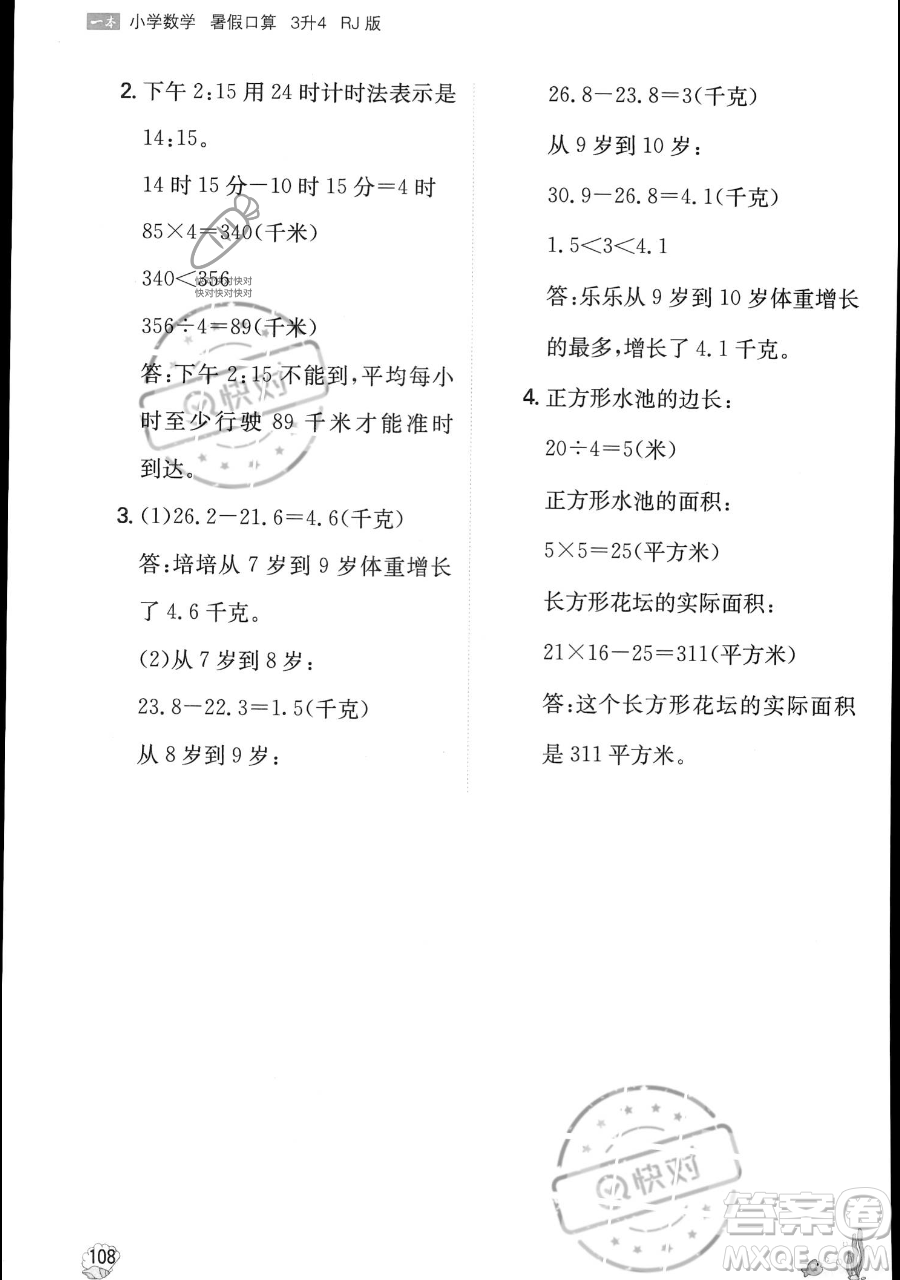 一本 小学数学 暑假口算 3升4 RJ版
2. 下午2:15用24时计时法表示是
14:15。
14时15分－10时15分＝4时
85×4＝340(千米)
340＜356
快对快对快对
快对快对快对
356÷4＝89(千米)
答:下午2:15不能到,平均每小
时至少行驶89千米才能准时
到达。
快对
3. (1)26.2－21.6＝4.6(千克)
答:培培从7岁到9岁体重增长
了4.6千克。
(2)从7岁到8岁:
23.8－22.3＝1.5(千克)
从8岁到9岁:
26.8－23.8＝3(千克)
从9岁到10岁:
30.9－26.8＝4.1(千克)
1.5＜3＜4.1
答:乐乐从9岁到10岁体重增长
的最多,增长了4.1千克。
4. 正方形水池的边长:
20÷4＝5(米)
正方形水池的面积:
5×5＝25(平方米)
长方形花坛的实际面积:
21×16－25＝311(平方米)
答:这个长方形花坛的实际面积
是311平方米。
快对
答案卷
MXQE.COM
108